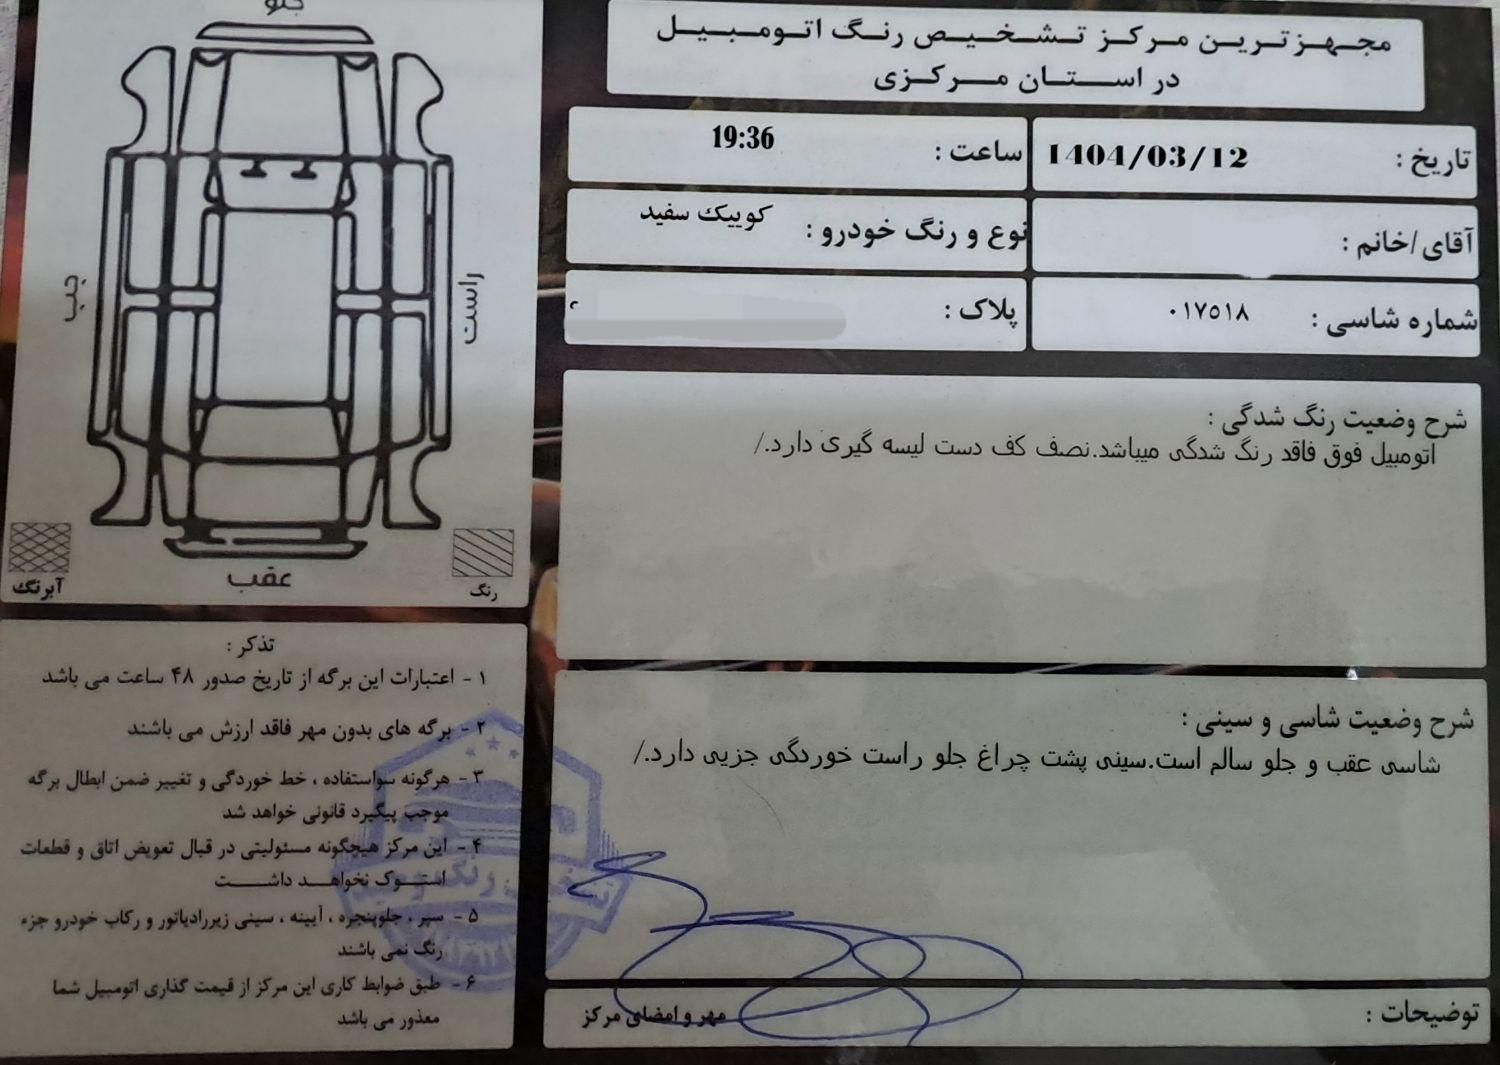 مجهزترین مرکز تشخیص رنگ اتومبیل
در استان مرکزی
تاریخ : 1404/03/12
ساعت : 19:36
آقای/خانم :
نوع و رنگ خودرو : کوییک سفید
شماره شاسی : ۰۱۷۵۱۸
پلاک :
شرح وضعیت رنگ شدگی :
اتومبیل فوق فاقد رنگ شدگی میباشد.نصف کف دست لیسه گیری دارد./
شرح وضعیت شاسی و سینی :
شاسی عقب و جلو سالم است.سینی پشت چراغ جلو راست خوردگی جزیی دارد./
توضیحات :
مهر و امضای مرکز
جلو
چپ
راست
عقب
آبرنگ
رنگ
تذکر :
۱ - اعتبارات این برگه از تاریخ صدور ۴۸ ساعت می باشد
۲ - برگه های بدون مهر فاقد ارزش می باشند
۳ - هرگونه سواستفاده ، خط خوردگی و تغییر ضمن ابطال برگه
موجب پیگیرد قانونی خواهد شد
۴ - این مرکز هیچگونه مسئولیتی در قبال تعویض اتاق و قطعات
استوک نخواهد داشت
۵ - سپر ، جلوپنجره ، آیینه ، سینی زیررادیاتور و رکاب خودرو جزء
رنگ نمی باشند
۶ - طبق ضوابط کاری این مرکز از قیمت گذاری اتومبیل شما
معذور می باشد